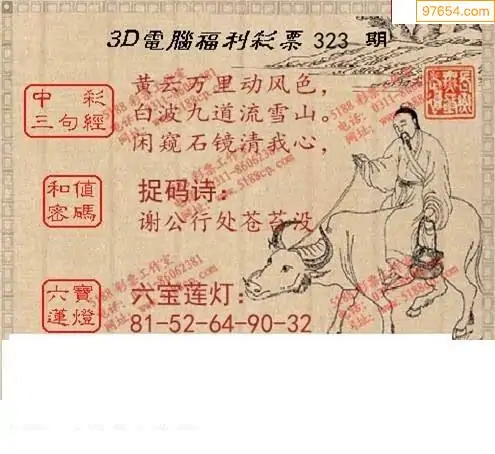 97654.com
3D電腦福利彩票 323 期
中彩
三句經
黄云万里动风色，
白波九道流雪山。
闲窥石镜清我心，
和值
密碼
捉码诗：
谢公行处苍苔没
六寶
蓮燈
六宝莲灯：
81-52-64-90-32
5188 彩票工作室
0311-86062381
网址：www.5188cp.com